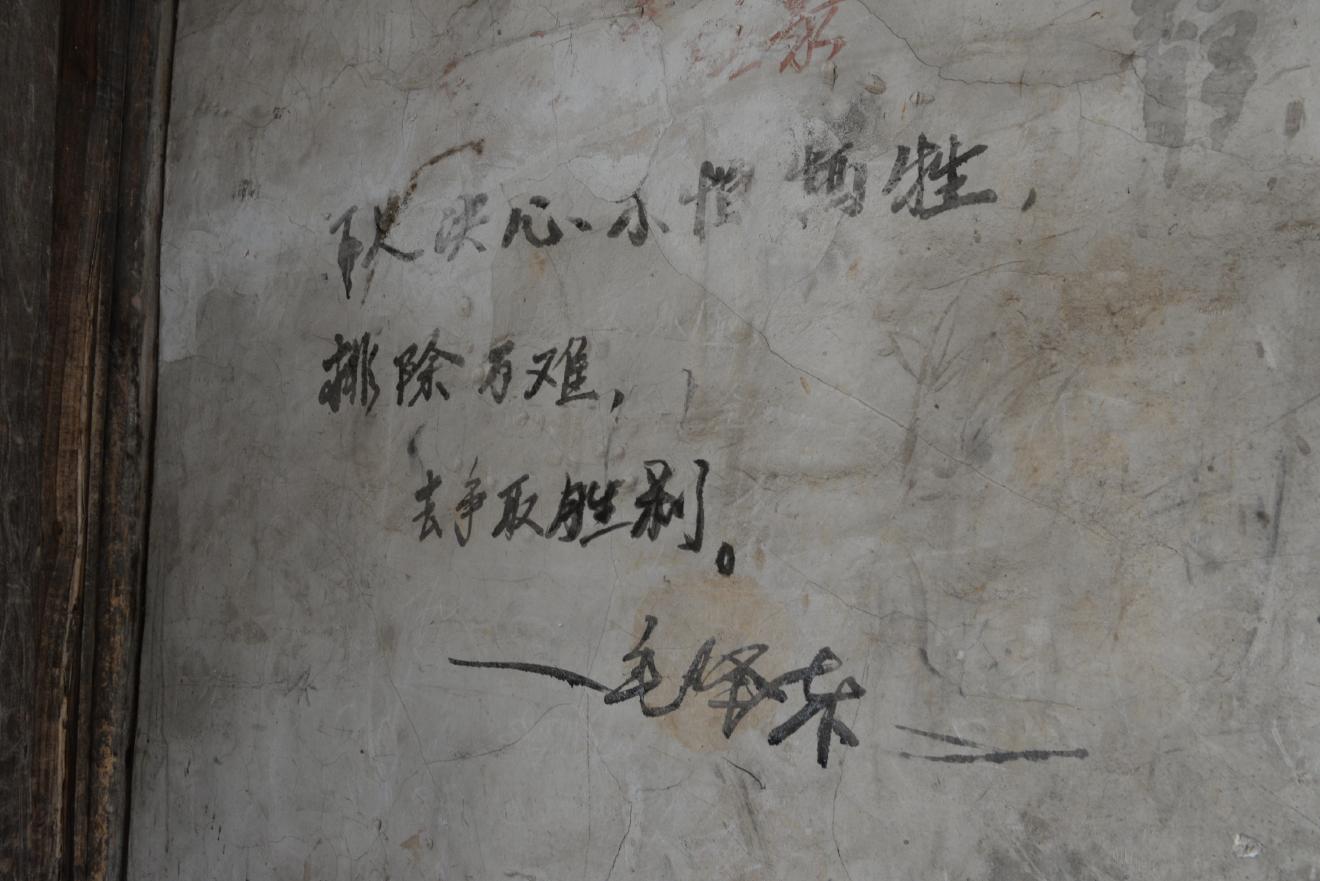 下定决心、不怕牺牲，
排除万难，
去争取胜利。
—毛泽东